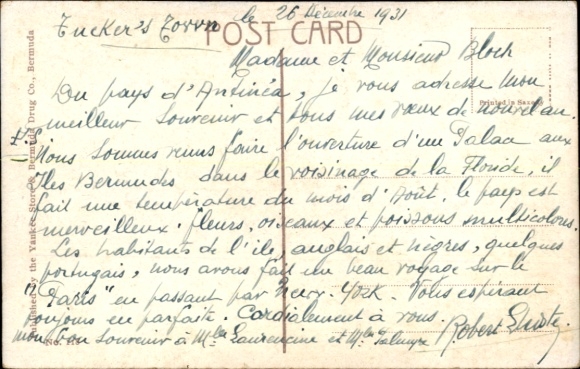 Tucker's Town le 26 Décembre 1931
POST CARD
Madame et Monsieur Bloch
Du pays d'Antinéa, je vous adresse mon
meilleur souvenir et tous mes vœux de nouvel an.
Printed in Saxony
Nous sommes venus faire l'ouverture d'un Palace aux
Iles Bermudes dans le voisinage de la Floride, il
fait une température du mois d'Août, le pays est
merveilleux. fleurs, oiseaux et poissons multicolores.
Les habitants de l'ile, anglais et nègres, quelques
portugais, nous avons fait un beau voyage sur le
"Paris" en passant par New-York. Vous espérant
toujours en parfaite. Cordialement à vous.
mon bon souvenir à Mlle Laurencine et Mlle Palmyre Robert
Published by the Yankee Store & Bermuda Drug Co., Bermuda
No.